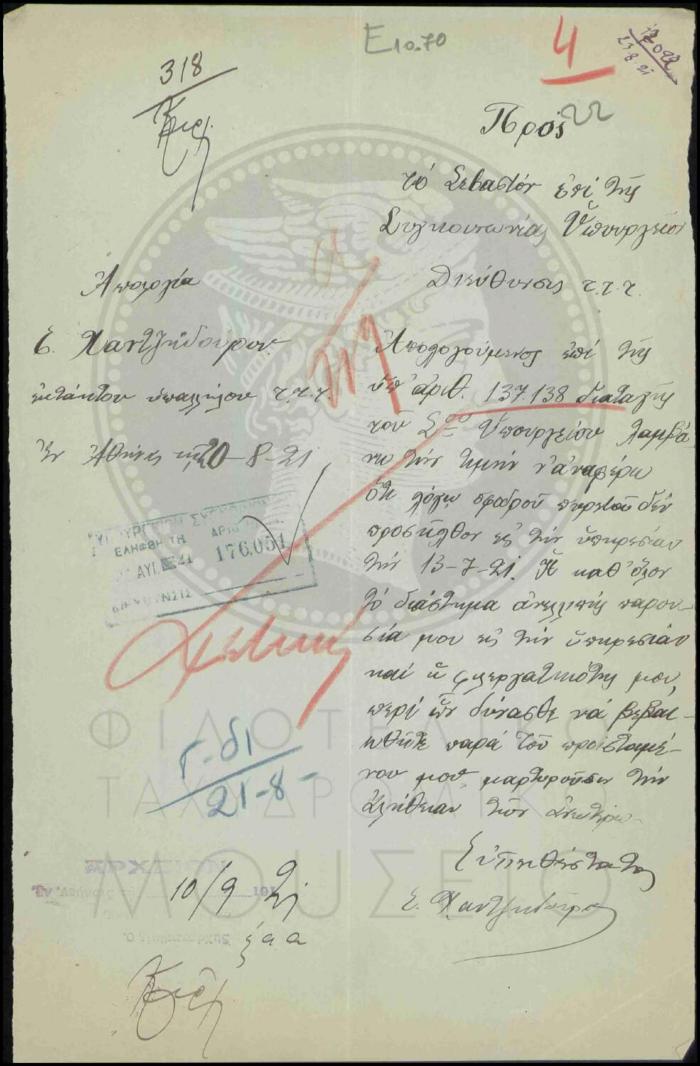 Ε10.70
4
12022
23.8.21
318
Πρὸς
22
τὸ Σεβαστὸν ἐπὶ τῆς
Συγκοινωνίας Ὑπουργεῖον
Διεύθυνσις τ.τ.τ.
Ἀπολογία
Ε. Χαντζηδούρου
ἐκτάκτου ὑπαλλήλου τ.τ.τ.
Ἐν Ἀθήναις τῇ 20-8-21
Ἀπολογούμενος ἐπὶ τῆς
ὑπ' ἀριθ. 137.138 διαταγῆς
τοῦ Σοῦ Ὑπουργείου λαμβά
νω τὴν τιμὴν ν' ἀναφέρω
ὅτι λόγῳ σφοδροῦ πυρετοῦ δὲν
προσῆλθον εἰς τὴν ὑπηρεσίαν
τὴν 13-7-21. Ἡ καθ' ὅλον
τὸ διάστημα ἀνελλιπὴς παρου-
σία μου εἰς τὴν ὑπηρεσίαν
καὶ ἡ φιλεργατικότης μου,
περὶ ὧν δύνασθε νὰ βεβαι-
ωθῆτε παρὰ τοῦ προϊσταμέ-
νου μου μαρτυροῦσιν τὴν
ἀλήθειαν τῶν ἀνωτέρω
Εὐπειθέστατος
Ε. Χαντζηδούρος
ΥΠΟΥΡΓΕΙΟΝ ΣΥΓΚΟΙΝΩΝΙΑΣ
ΕΛΗΦΘΗ ΤΗ ΑΡΙΘ
ΑΥΓ 21 176.051
ΔΙΕΥΘΥΝΣΙΣ
Γ-δι
21-8-
ΑΡΧΕΙΟΝ
Ἐν Ἀθήναις τῇ 10/9 21 191
ΦΙΛΟΤΕΛΙΚΟ
ΤΑΧΥΔΡΟΜΙΚΟ
ΜΟΥΣΕΙΟ